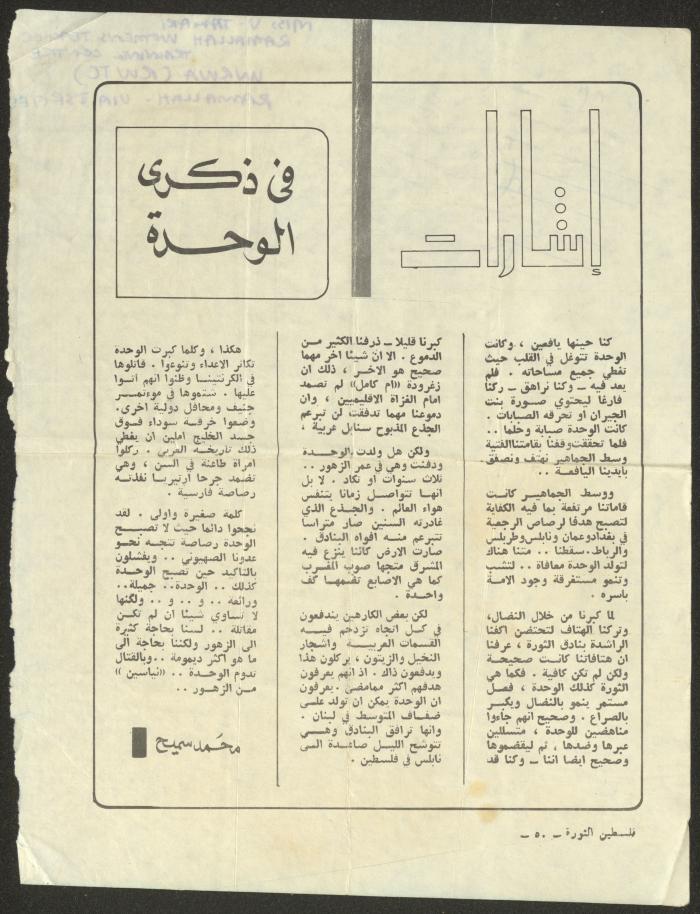 MISS V. TAMARI
RAMALLAH WOMEN'S
TRAINING CENTRE
UNRWA (RWTC)
RAMALLAH - VIA ISRAEL
إشارات
في ذكرى
الوحدة
كنا حينها يافعين ، وكانت
الوحدة تتوغل في القلب حيث
تغطي جميع مساحاته . فلم
يعد فيه ـ وكنا نراهق ـ ركنا
فارغا ليحتوي صورة بنت
الجيران أو تحرقه الصبايات .
كانت الوحدة صبابة وحلما ..
فلما تحققت وقفنا بقامتنا الفتية
وسط الجماهير نهتف ونصفق
بأيدينا اليافعة ..
ووسط الجماهير كانت
قاماتنا مرتفعة بما فيه الكفاية
لتصبح هدفا لرصاص الرجعية
في بغداد وعمان ونابلس وطربلس
والرباط . سقطنا .. متنا هناك
لتولد الوحدة معافاة .. لتشب
وتنمو مستغرقة وجود الامة
باسره .
لما كبرنا من خلال النضال،
وتركنا الهتاف لتحتضن اكفنا
الراشدة بنادق الثورة ، عرفنا
ان هتافاتنا كانت صحيحة
ولكن لم تكن كافية . فكما هي
الثورة كذلك الوحدة ، فصل
مستمر ينمو بالنضال ويكبر
بالصراع . وصحيح انهم جاءوا
مناهضين للوحدة ، متسللين
عبرها وضدها ، ثم ليقضموها
وصحيح ايضا اننا ـ وكنا قد
كبرنا قليلا ـ ذرفنا الكثير من
الدموع . الا ان شيئا اخر مهما
صحيح هو الاخر ، ذلك ان
زغرودة «ام كامل» لم تصمد
امام الغزاة الاقليميين ، وان
دموعنا مهما تدفقت لن تبرعم
الجذع المذبوح سنابل عربية ،
ولكن هل ولدت الوحدة
ودفنت وهي في عمر الزهور ..
ثلاث سنوات او تكاد . لا بل
انها تتواصل زمانا يتنفس
هواء العالم . والجذع الذي
غادرته السنين صار متراسا
تتبرعم منه افواه البنادق .
صارت الارض كائنا ينزع فيه
المشرق متجها صوب المغرب
كما هي الاصابع تضمها كف
واحدة .
لكن بعض الكارهين يندفعون
في كل اتجاه تزدحم فيه
القسمات العربية واشجار
النخيل والزيتون ، يركلون هذا
ويدفعون ذاك . اذ انهم يعرفون
هدفهم اكثر مما مضى . يعرفون
ان الوحدة يمكن ان تولد على
ضفاف المتوسط في لبنان .
وانها ترافق البنادق وهي
تتوشح الليل صاعدة الى
نابلس في فلسطين .
هكذا ، وكلما كبرت الوحدة
تكاثر الاعداء وتنوعوا . قاتلوها
في الكرنتينا وظنوا انهم اتوا
عليها . شتموها في مؤتمر
جنيف ومحافل دولية اخرى.
وضعوا خرقة سوداء فوق
جسد الخليج املين ان يغطي
ذلك تاريخه العربي . ركلوا
امراة طاعنة في السن ، وهي
تضمد جرحا ارتيريا نفذته
رصاصة فارسية .
كلمة صغيرة واولى . لقد
نجحوا دائما حيث لا تصبح
الوحدة رصاصة تتجه نحو
عدونا الصهيوني .. ويفشلون
بالتاكيد حين تصبح الوحدة
كذلك .. الوحدة.. جميلة..
ورائعة .. و .. و .. ولكنها
لا تساوي شيئا ان لم تكن
مقاتلة .. لسنا بحاجة كثيرة
الى الزهور ولكننا بحاجة الى
ما هو اكثر ديمومة .. وبالقتال
تدوم الوحدة .. «نياسين »
من الزهور ..
محمد سميح
فلسطين الثورة ـ ٥٠ ـ